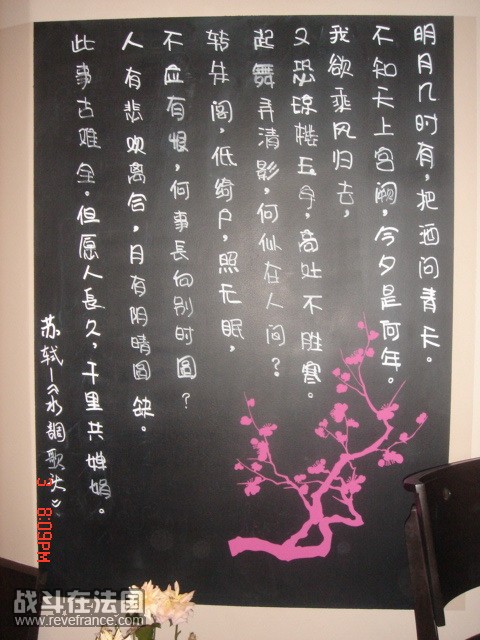 明月几时有，把酒问青天。
不知天上宫阙，今夕是何年。
我欲乘风归去，
又恐琼楼玉宇，高处不胜寒。
起舞弄清影，何似在人间？
转朱阁，低绮户，照无眠，
不应有恨，何事長向别时圆？
人有悲欢离合，月有阴晴圆缺。
此事古难全。但愿人長久，千里共婵娟。
苏轼—《水调歌头》
3 8:09PM
战斗在法国
www.revefrance.com